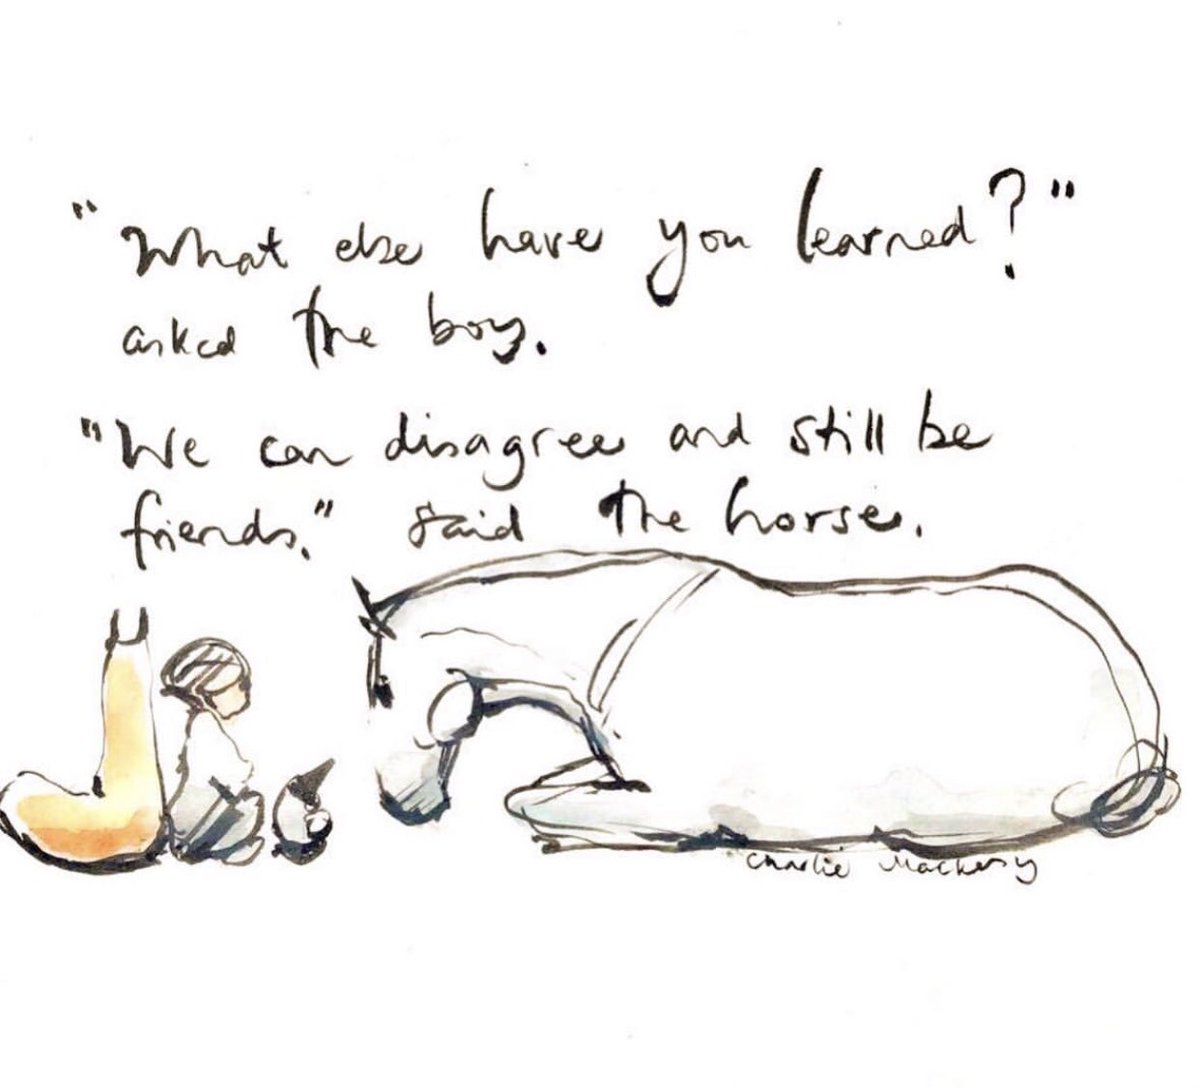 "What else have you learned?"
asked the boy.
"We can disagree and still be
friends." said the horse.
Charlie Mackesy